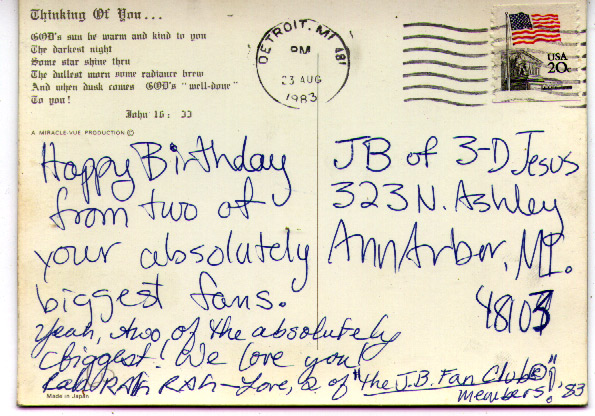 Thinking Of You...
GOD's sun be warm and kind to you
The darkest night
Some star shine thru
The dullest morn some radiance brew
And when dusk comes GOD's "well-done"
To you!
John 16: 33
A MIRACLE-VUE PRODUCTION ©
DETROIT, MI 481
PM
23 AUG
1983
USA
20c
Happy Birthday
from two of
your absolutely
biggest fans.
Yeah, two of the absolutely
biggest! We love you!
Rah RAH RAH-Love, 2 of "the J.B. Fan Club®"
members!, '83
JB of 3-D Jesus
323 N. Ashley
Ann Arbor, MI.
48103
Made in Japan